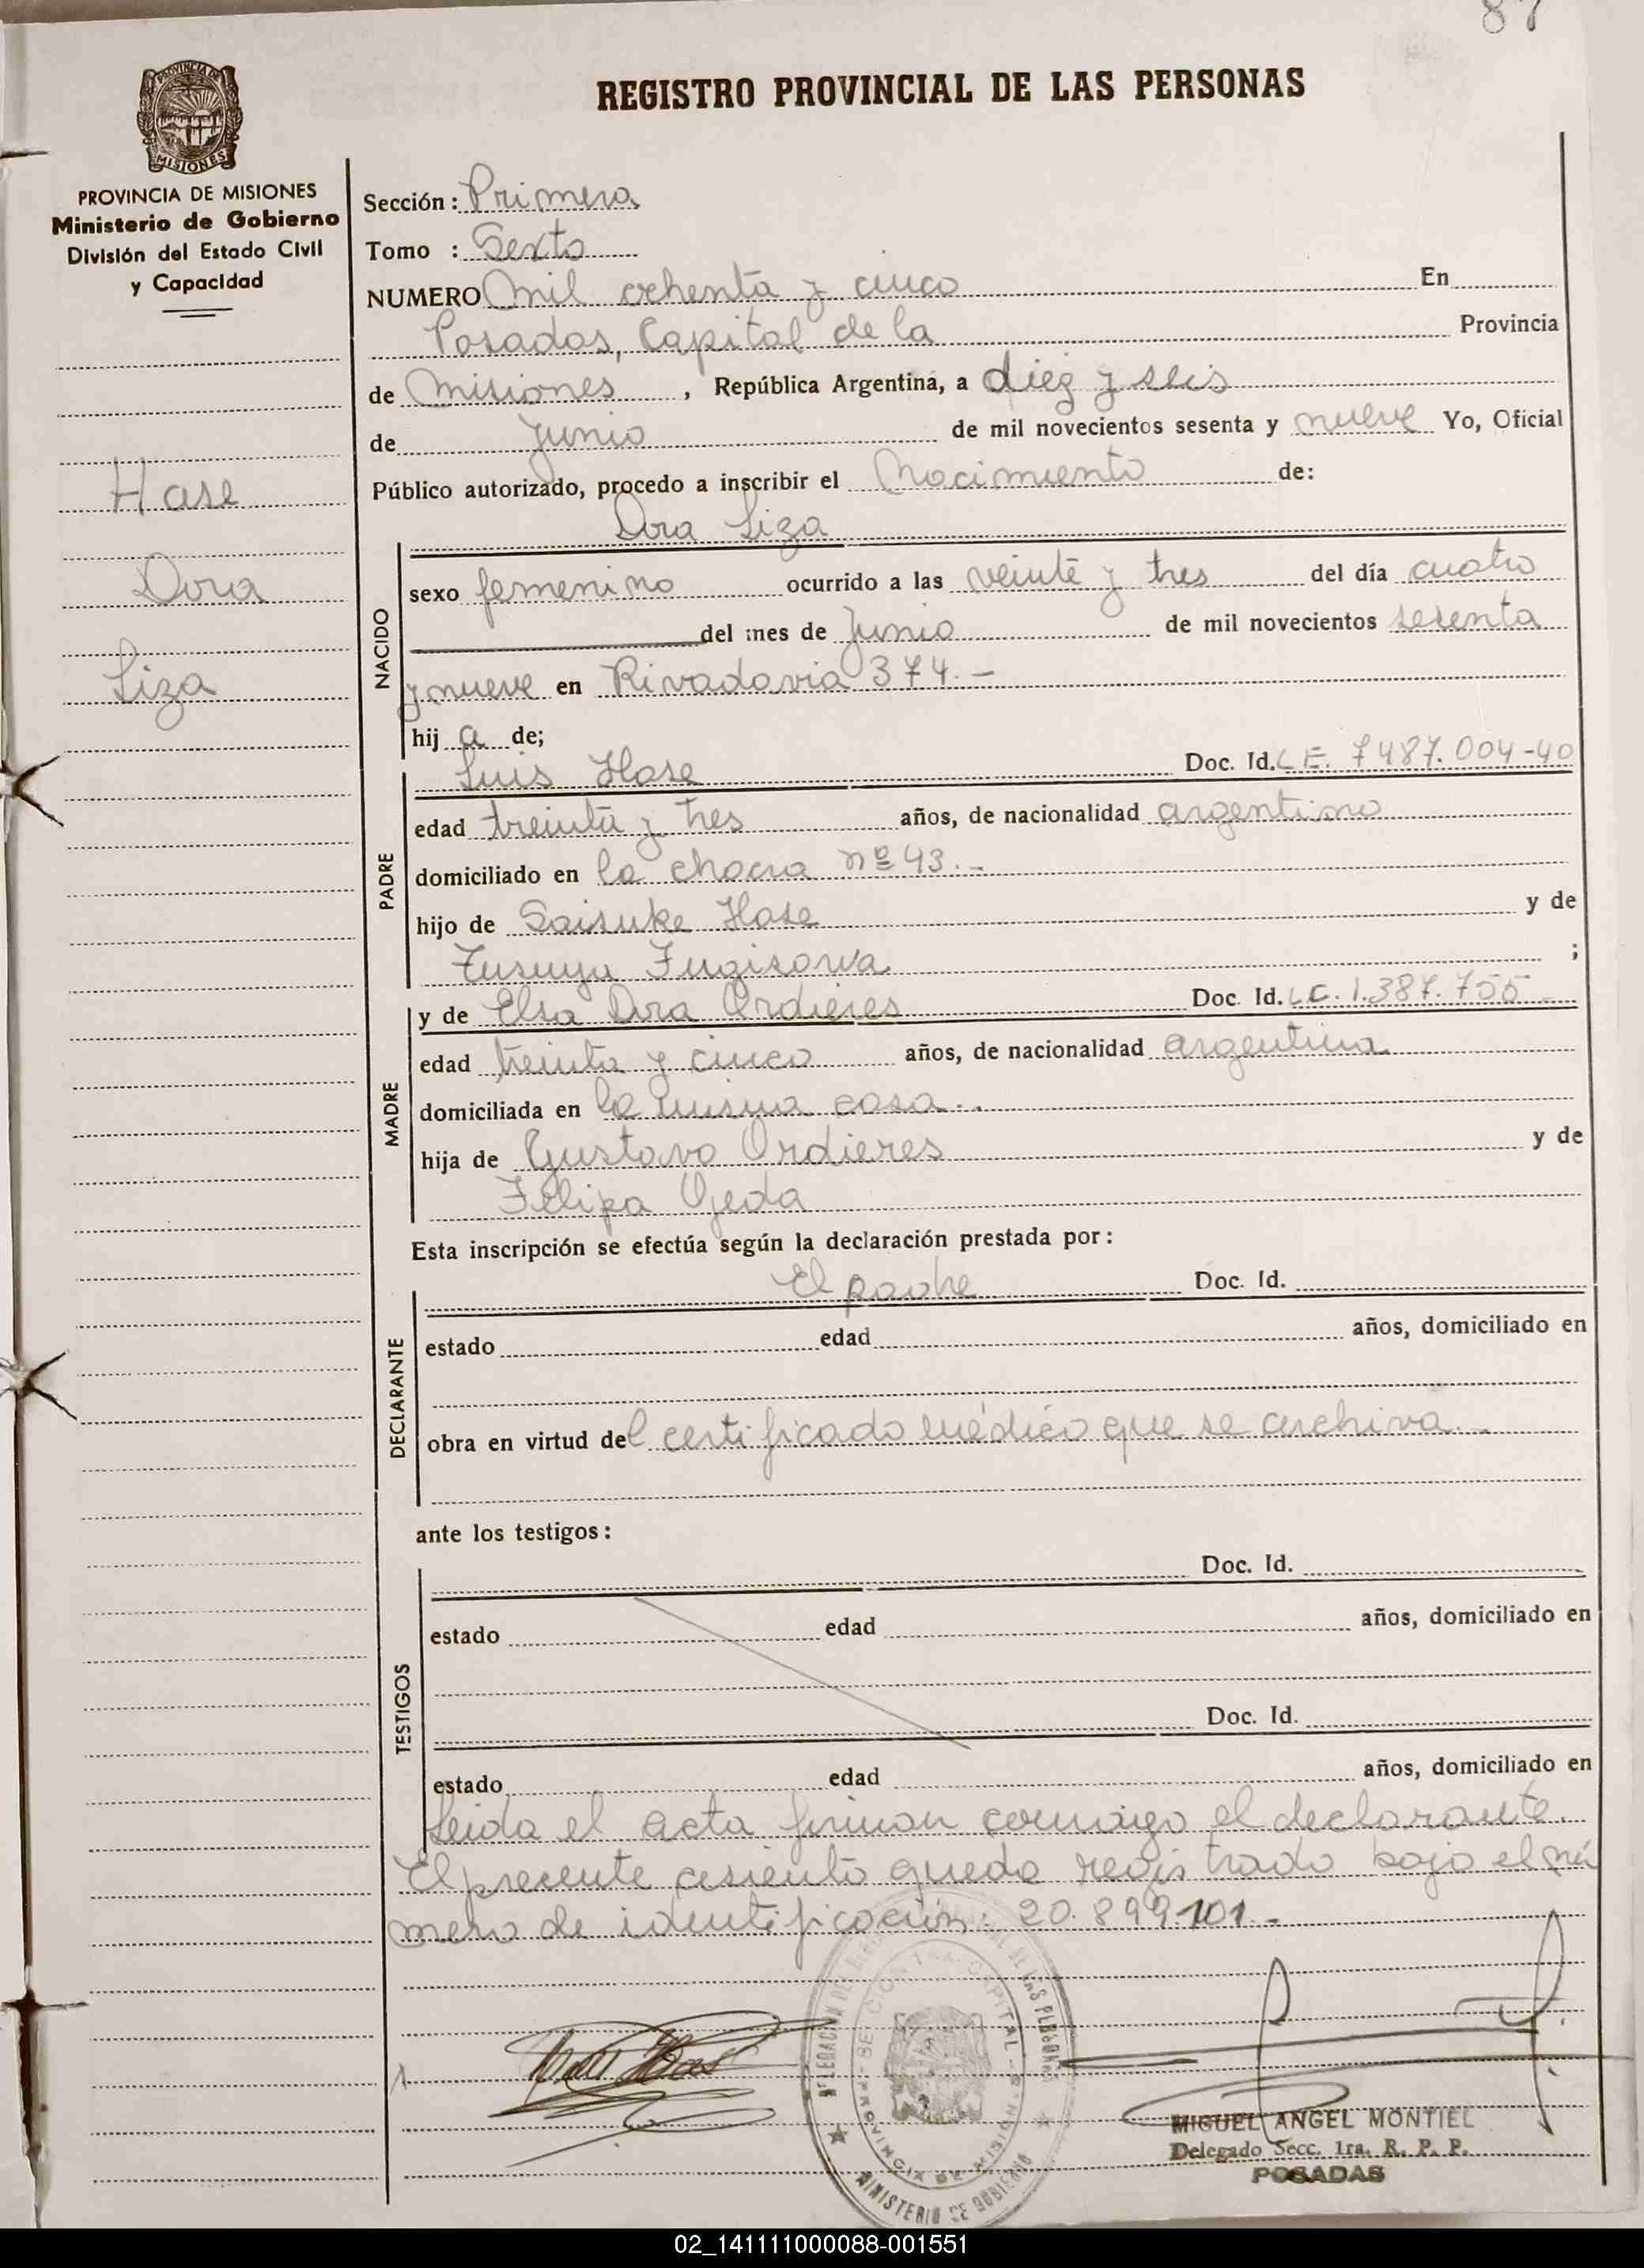 87
REGISTRO PROVINCIAL DE LAS PERSONAS
PROVINCIA DE MISIONES
MISIONES
PROVINCIA DE MISIONES
Ministerio de Gobierno
División del Estado Civil
y Capacidad
Hase
Dora
Liza
Sección: Primera
Tomo : Sexto
NUMERO mil ochenta y cinco En
Posadas, Capital de la Provincia
de Misiones, República Argentina, a diez y seis
de Junio de mil novecientos sesenta y nueve Yo, Oficial
Público autorizado, procedo a inscribir el Nacimiento de:
Dora Liza
NACIDO
sexo femenino ocurrido a las veinte y tres del día cuatro
del mes de Junio de mil novecientos sesenta
y nueve en Rivadavia 374.-
hij a de;
PADRE
Luis Hase Doc. Id. L.E. 7487.004-40
edad treinta y tres años, de nacionalidad argentino
domiciliado en la chacra nº 43.-
hijo de Saisuke Hase y de
Fugisawa ;
MADRE
y de Elsa Dora Ordieres Doc. Id. L.C. 1.387.755-
edad treinta y cinco años, de nacionalidad argentina
domiciliada en la misma casa..
hija de Gustavo Ordieres y de
Felipa Ojeda
Esta inscripción se efectúa según la declaración prestada por:
DECLARANTE
El padre Doc. Id.
estado edad años, domiciliado en
obra en virtud del certificado médico que se archiva.-
ante los testigos:
TESTIGOS
Doc. Id.
estado edad años, domiciliado en
Doc. Id.
estado edad años, domiciliado en
Leida el acta firman conmigo el declarante.
El presente asiento queda registrado bajo el nú
mero de identificación: 20.899.101.-
SECCION 1RA. CAPITAL
PROVINCIA DE MISIONES
MINISTERIO DE GOBIERNO
MIGUEL ANGEL MONTIEL
Delegado Secc. 1ra. R. P. P.
POSADAS
02_141111000088-001551